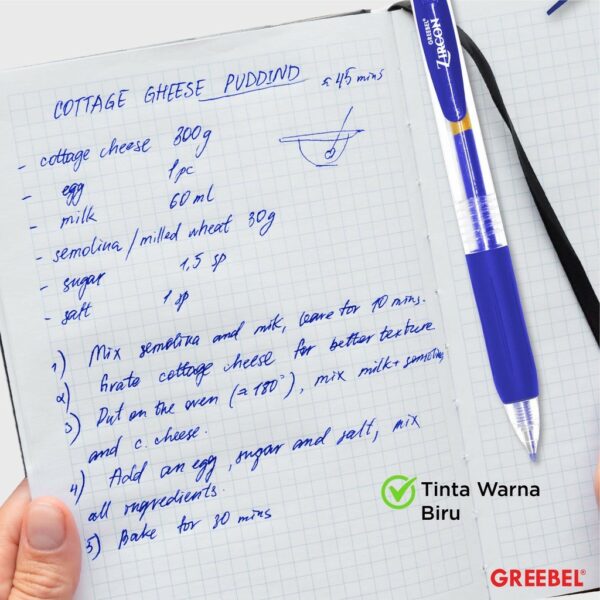 GREEBEL®
ZIRCON
COTTAGE GHEESE PUDDIND ≈ 45 mins
- cottage cheese 300g
- egg 1 pc
- milk 60 ml
- semolina / milled wheat 30g
- sugar 1,5 sp
- salt 1 sp
1) Mix semolina and milk, leave for 10 mins.
2) Grate cottage cheese for better texture
3) Put on the oven (≈180°), mix milk + semolina
and c. cheese.
4) Add an egg, sugar and salt, mix
all ingredients.
5) Bake for 30 mins
Tinta Warna
Biru
GREEBEL®